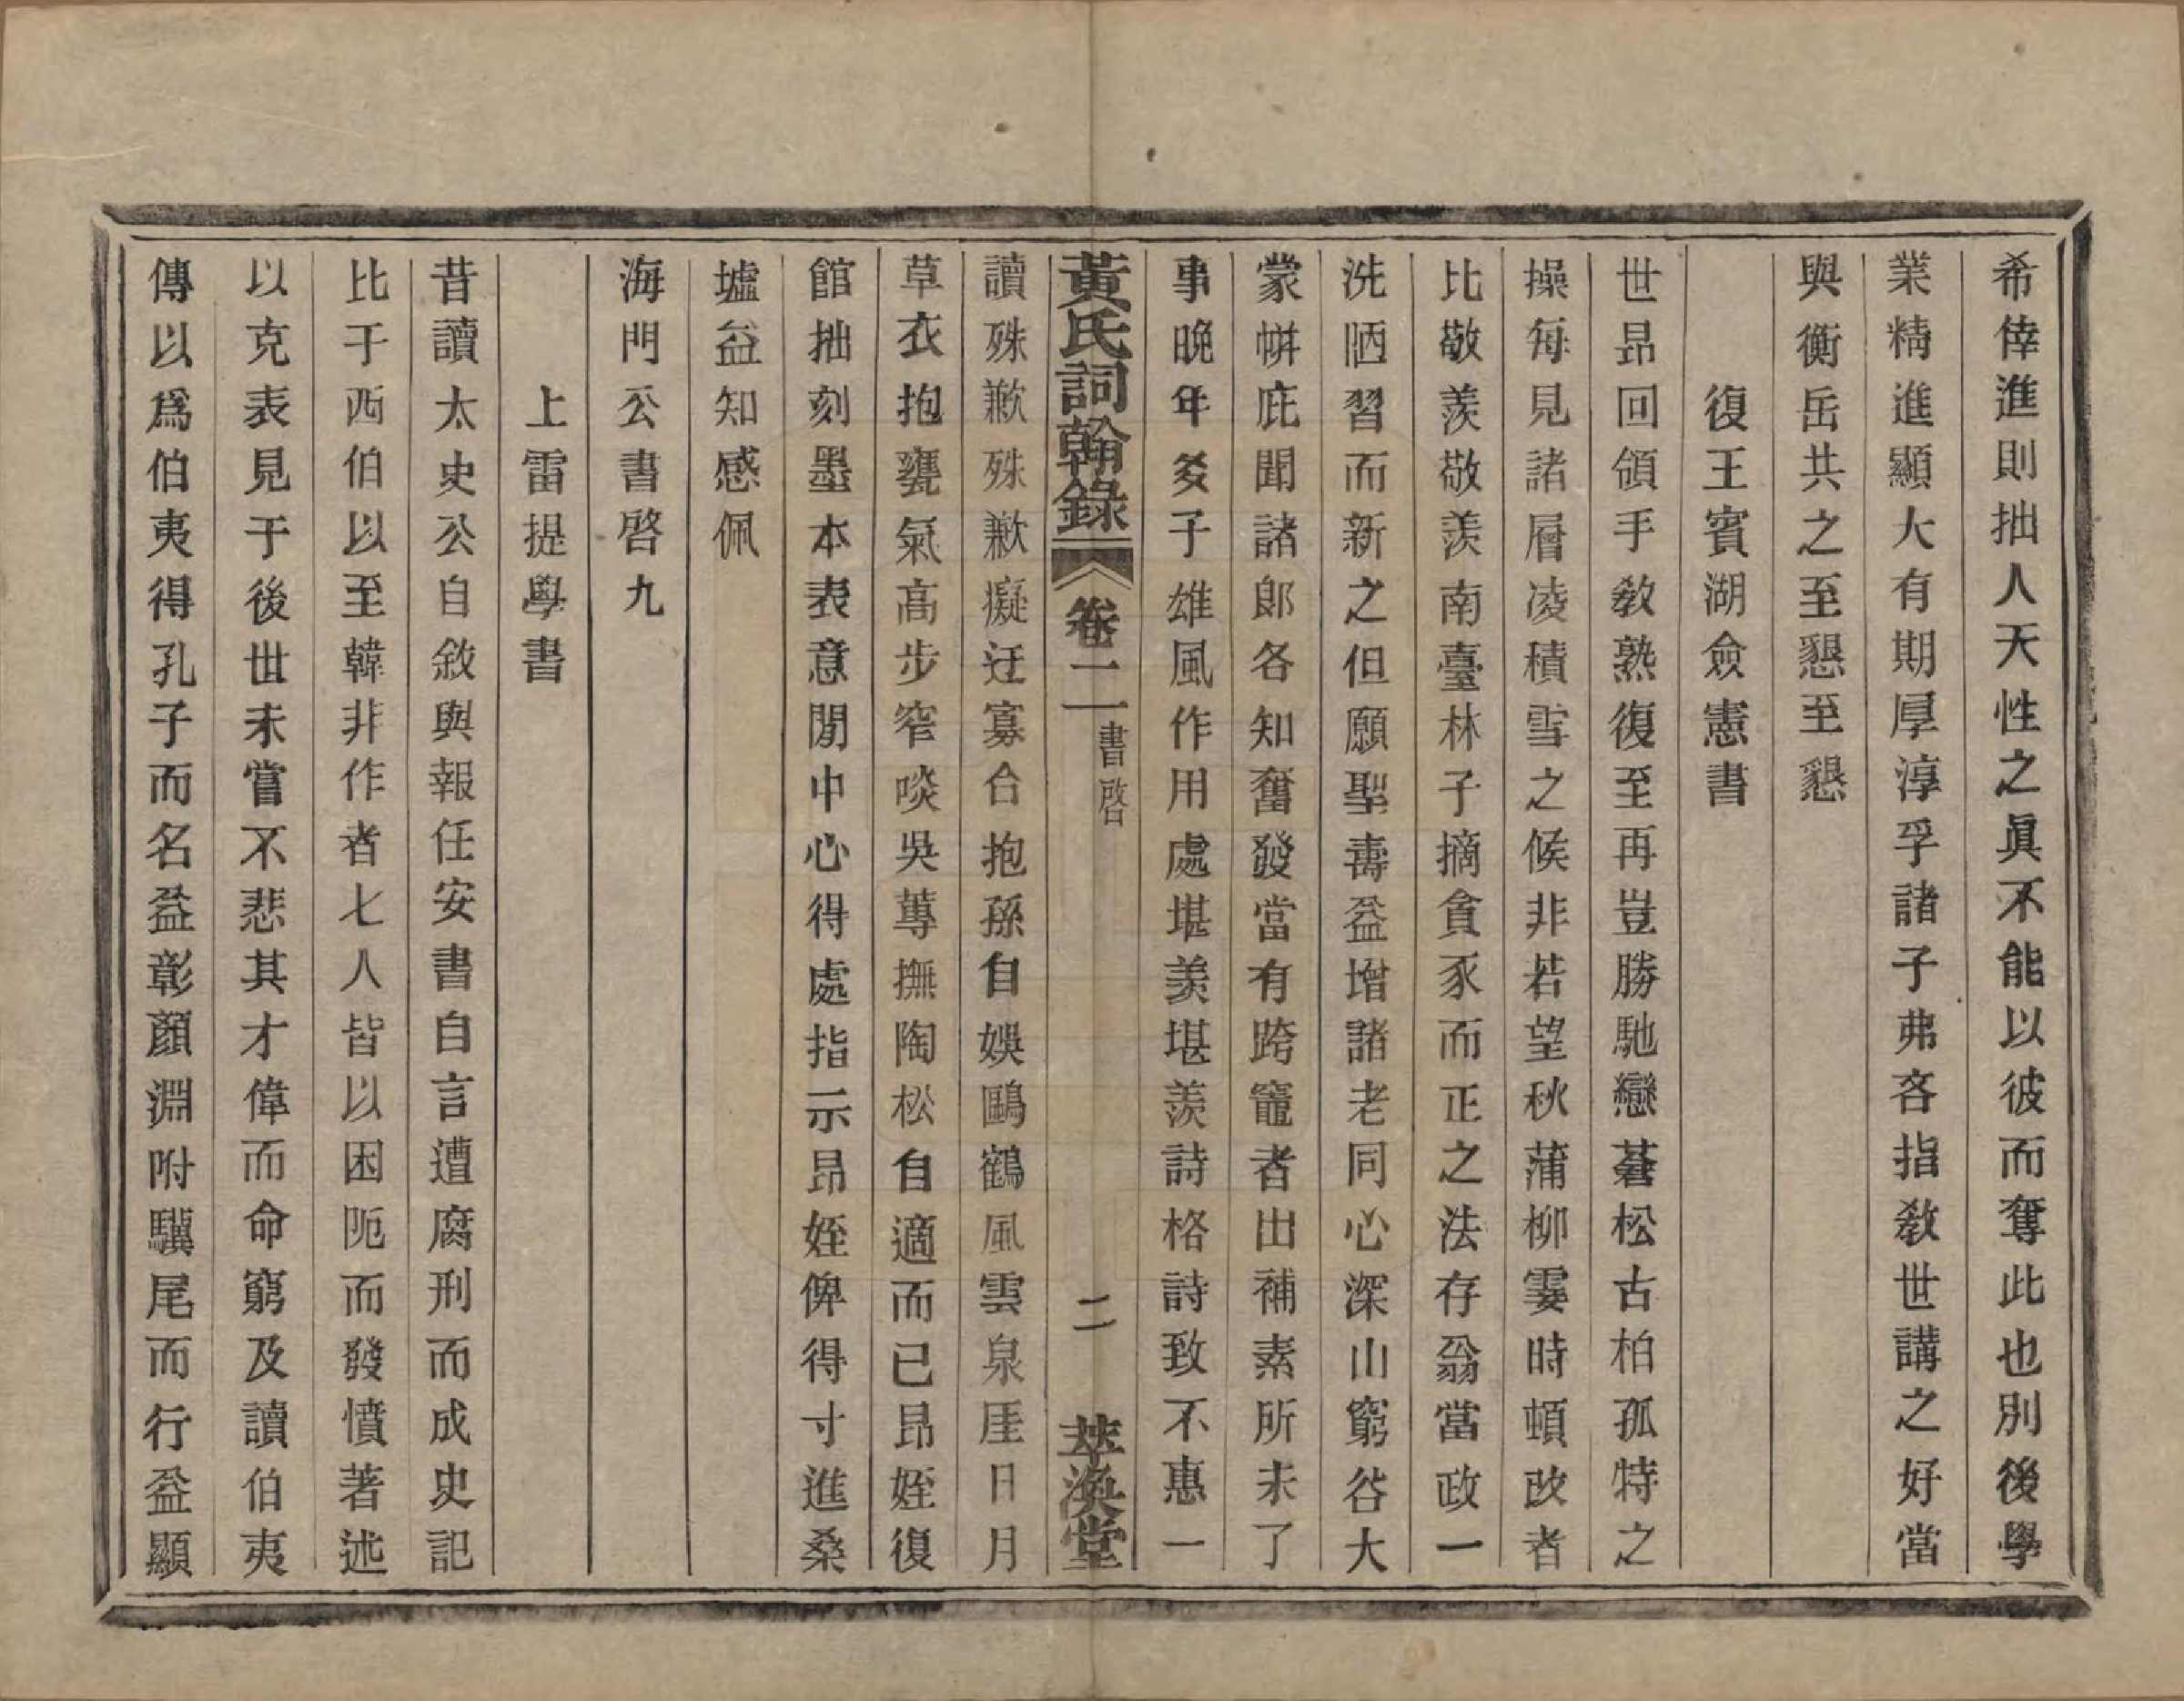 希倖進則拙人天性之眞不能以彼而奪此也別後學
業精進顯大有期厚淳孚諸子弗吝指敎世講之好當
與衡岳共之至懇至懇
復王賓湖僉憲書
世昂回領手敎熟復至再豈勝馳戀蒼松古柏孤特之
操每見諸層凌積雪之候非若望秋蒲柳霎時頓改者
比敬羨敬羨南臺林子摘貪豕而正之法存翁當政一
洗陋習而新之但願聖壽益增諸老同心深山窮谷大
蒙帡庇聞諸郎各知奮發當有跨竈者出補素所未了
事晚年爻子雄風作用處堪羨堪羨詩格詩致不惠一
黃氏詞翰錄 卷二 書啓 二 萃渙堂
讀殊歉殊歉癡迂寡合抱孫自娛鷗鶴風雲泉厓日月
草衣抱甕氣高步窄啖吳蓴撫陶松自適而已昂姪復
館拙刻墨本表意閒中心得處指示昂姪俾得寸進桑
墟益知感佩
海門公書啓九
上雷提學書
昔讀太史公自敘與報任安書自言遭腐刑而成史記
比于西伯以至韓非作者七人皆以困阨而發憤著述
以克表見于後世未嘗不悲其才偉而命窮及讀伯夷
傳以爲伯夷得孔子而名益彰顏淵附驥尾而行益顯